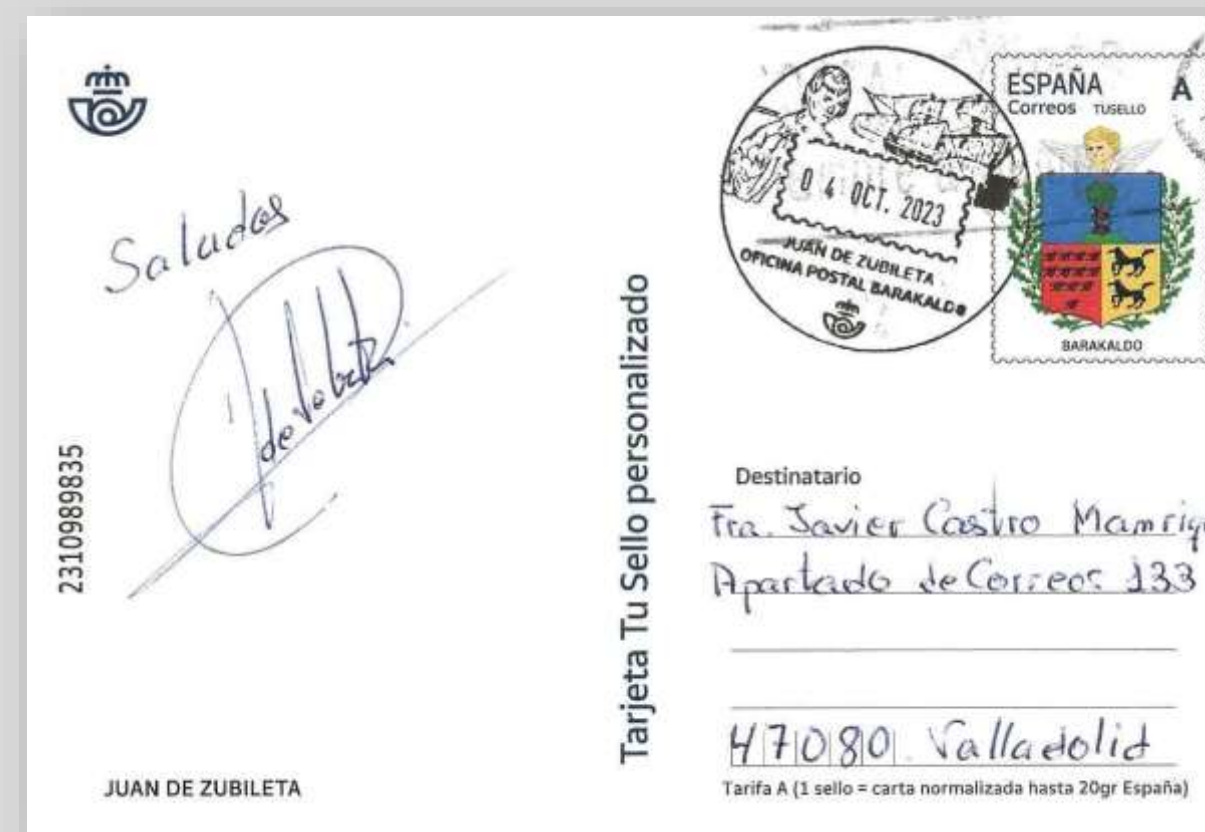 Saludos
2310989835
JUAN DE ZUBILETA
Tarjeta Tu Sello personalizado
04 OCT. 2023
JUAN DE ZUBILETA
OFICINA POSTAL BARAKALDO
ESPAÑA
Correos TUSELLO
A
BARAKALDO
Destinatario
Fra. Javier Castro Manriq
Apartado de Correos 133
47080 Valladolid
Tarifa A (1 sello = carta normalizada hasta 20gr España)